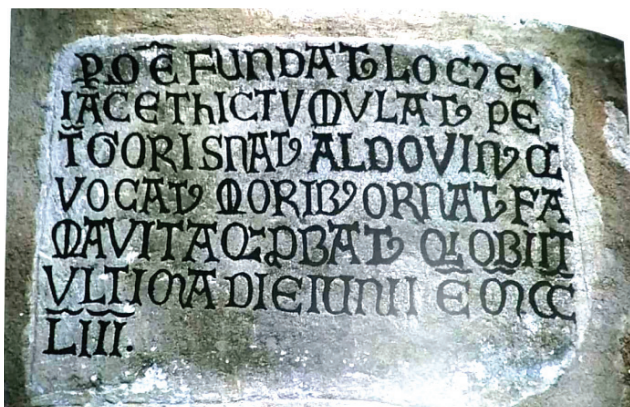 P̱ QO Ē FUNDATꝰ LOCꝰ E
IACET hIC TVMVLATꝰ PE
T̄ GORIS NATꝰ ALDOVINꝰ Q
VOCATꝰ MORIBꝰ ORNATꝰ FA
MA VITA Q: PBATꝰ Q OBIIT
VLTIMA DIE IUNII E M CC
LIII.